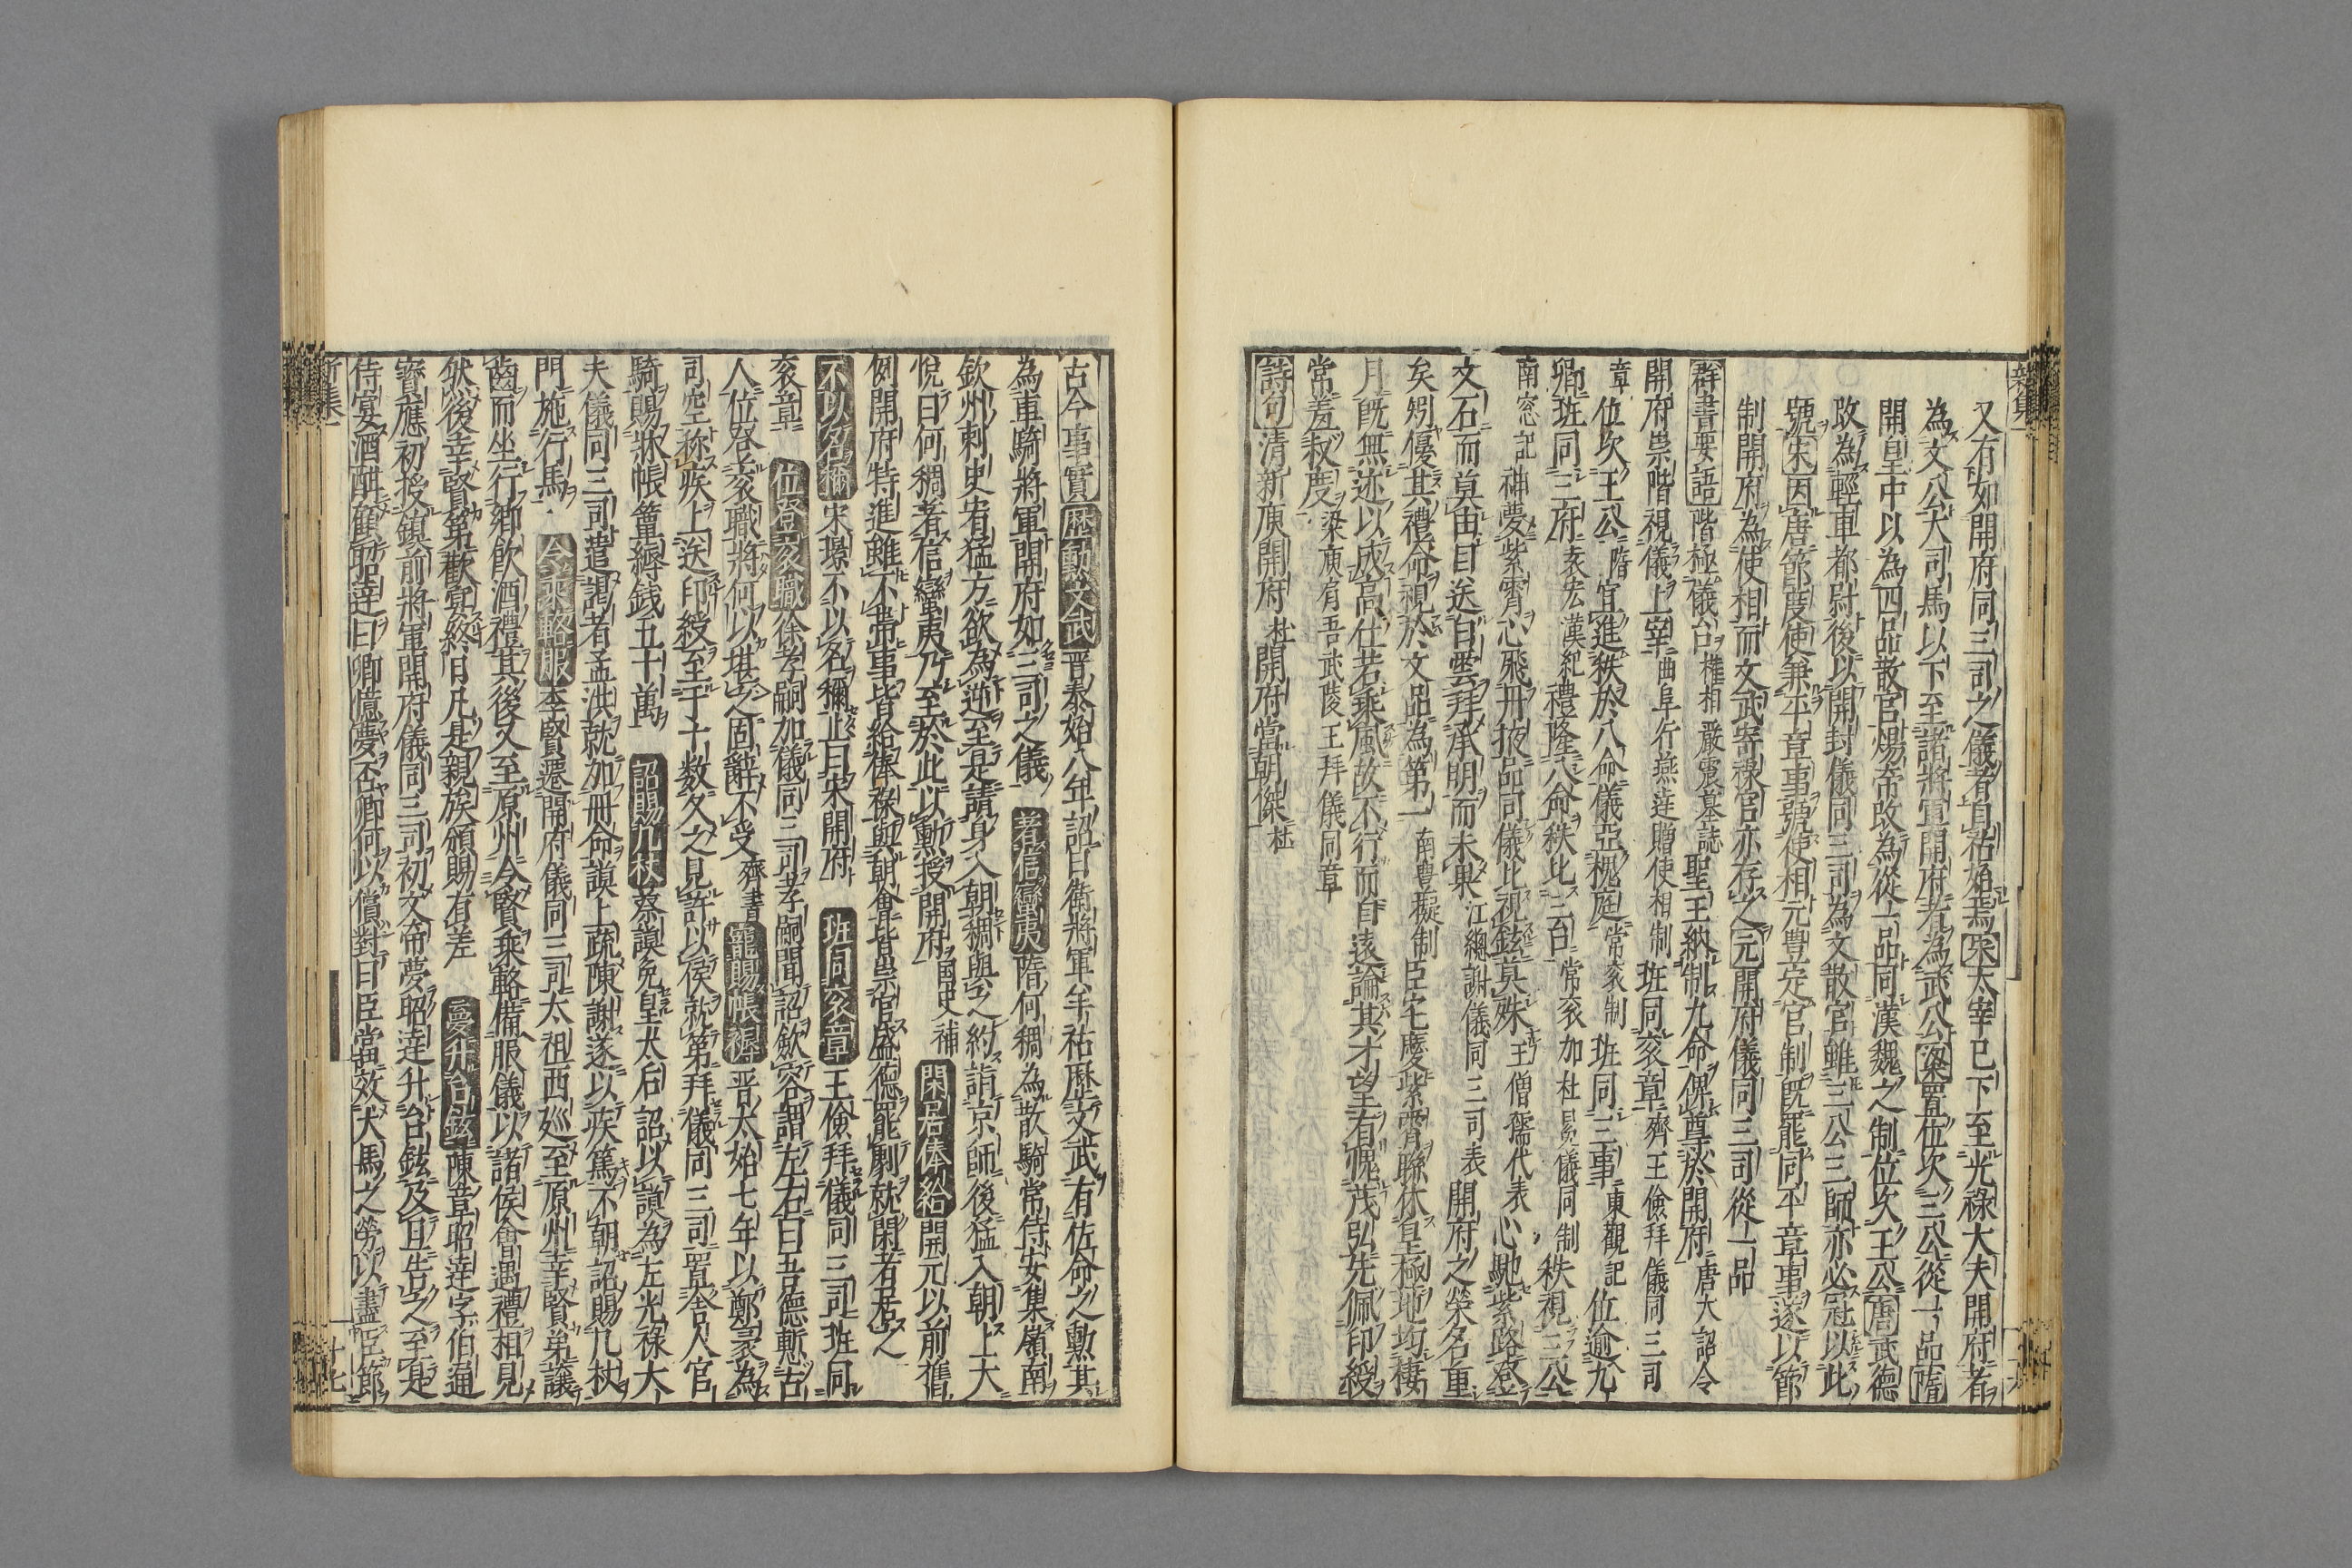 又有如開府同三司之儀者自祐始焉宋太宰已下至光祿大夫開府者
為文公大司馬以下至諸將軍開府者為武公梁置位次三公從一品隋
開皇中以為四品散官煬帝改為從一品同漢魏之制位次王公唐武德
改為輕車都尉後以開封儀同三司為文散官雖三公三師亦必冠以此
號宋因唐節度使兼平章事號使相元豊定官制既罷同平章事遂以節
制開府為使相而文武寄祿官亦存之元開府儀同三司從一品
群書要語階極儀台權相嚴震墓誌聖王納制九命俾尊於開府唐大詔令
開府崇階視儀上宰曲阜行燕達贈使相制班同衮章齊王儉拜儀同三司
章位次王公隋官進秩於八命儀亞槐庭常衮制班同三事東觀記位逾九
卿班同三府袁宏漢紀禮隆八命秩比三台常衮加杜晃儀同制秩視三公
南窓記神夢紫霄心飛丹掖品同儀比視鉉莫殊王僧孺代表心馳紫路登
文石而莫由目送白雲拜承明而未果江總謝儀同三司表開府之榮名重
矣矧優其禮命視於文品為第一南豊擬制臣宅慶紫霄聯休皇極地均棲
月既無迹以成高仕若乘風故不行而自遠論其才望有愧茂弘先佩印綬
常羞叔度梁庾肩吾武陵王拜儀同章
詩句清新庾開府杜開府當朝傑杜
古今事實歷勤文武晋泰始八年詔曰衛將軍羊祜歷文武有佐命之勲其
為車騎將軍開府如三司之儀 著信蠻夷隋何稠為散騎常侍安集嶺南
欽州刺史甯猛力欲為逆至是請身入朝稠與之約詣京師後猛入朝上大
悅曰何稠著信蠻夷乃至於此以勲授開府国史補閑居俸給開元以前舊
例開府特進雖不常事皆給棒祿與朝會皆崇官盛德罷劇就閑者居之
不以名稱宋璟不以名稱止曰宋開府 班同衮章王儉拜儀同三司班同
衮章 位登衮職徐孝嗣加儀同三司孝嗣聞詔斂容謂左右曰吾德慙古
人位登衮職將何以堪之固辭不受齊書寵賜帳褥晋太始七年以鄭袤為
司空称疾上送印綬至于十数久之見許以侯就第拜儀同三司置舍人官
騎賜牀帳簟縟銭五十萬 詔賜几杖蔡謨免皇太后詔以謨為左光祿大
夫儀同三司遣謁者孟洪就加冊命謨上疏陳謝遂以疾篤不朝詔賜几杖
門施行馬 令乘輅服李賢遷開府儀同三司太祖西廵至原州幸賢弟讓
齒而坐行郷飲酒禮其後又至原州令賢乘輅備服儀以諸侯會遇禮相見
然後幸賢第歡宴終日凡是親族頒賜有差 夢升台鉉陳章昭達字伯通
寳應初授鎮前將軍開府儀同三司初文帝夢昭達升台鉉及旦告之至是
侍宴酒酣顧昭達曰卿憶夢否卿何以償對曰臣當效犬馬之勞以盡臣節